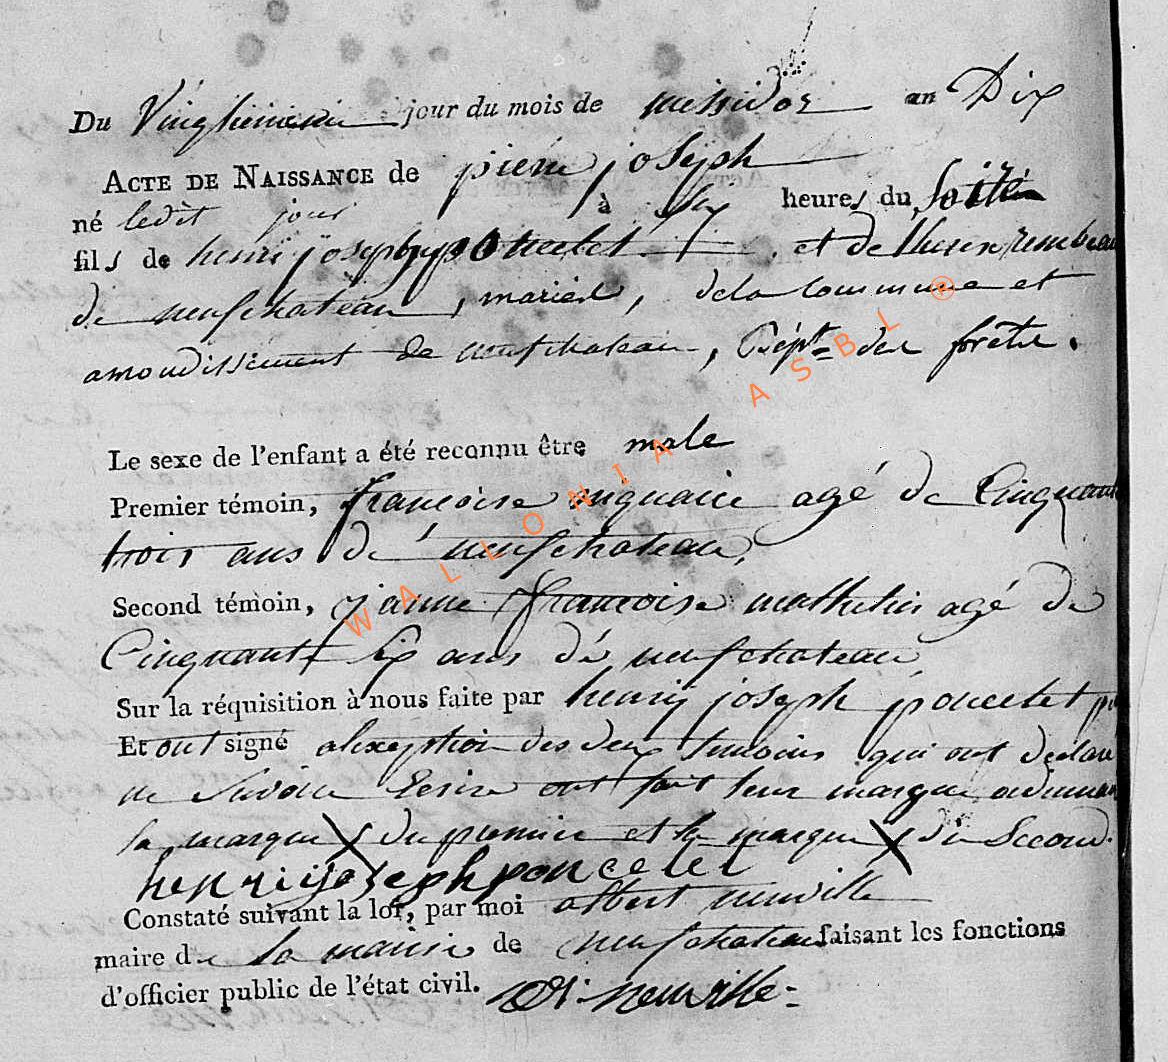 Du Vingtieme jour du mois de messidor an Dix
ACTE DE NAISSANCE de pierre joseph
né ledit jour à Six heures du soir
fils de henri joseph poncelet et de therese
de neufchateau, mariés, dela Commune et
arrondissement de neufchateau, Dépt. des forêts.
Le sexe de l'enfant a été reconnu être male
Premier témoin, francoise agé de Cinquante
trois ans de neufchateau,
Second témoin, janne francoise mathelin agé de
Cinquante Six ans dé neufchateau
Sur la réquisition à nous faite par henry joseph poncelet
Et ont signé alexeption des deux temoins qui ont declaré
ne Savoir Ecrire ont fait leur marque
la marque X du premier et la marque X du Second.
henrijoseph poncelet
Constaté suivant la loi, par moi albert neuville
maire de la mairie de neufchateau faisant les fonctions
d'officier public de l'état civil. A. neuville
WALLONIA ASBL ®